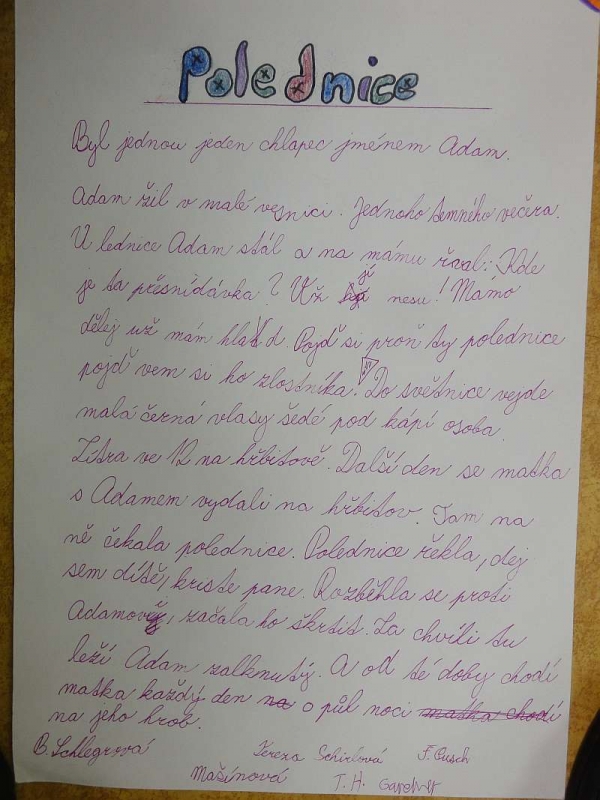 Polednice
Byl jednou jeden chlapec jménem Adam.
Adam žil v malé vesnici. Jednoho temného večera.
U lednice Adam stál a na mámu řval: Kde
je ta přesnídávka? Už ji nesu! Mámo
dělej už mám hlad. Pojď si proň ty polednice
pojď vem si ho zlostníka. Do světnice vejde
malá černá vlasy šedé pod kápí osoba.
Zítra ve 12 na hřbitově. Další den se matka
s Adamem vydali na hřbitov. Tam na
ně čekala polednice. Polednice řekla, dej
sem dítě, kriste pane. Rozběhla se proti
Adamovi, začala ho škrtit. Za chvíli tu
leží Adam zalknutý. A od té doby chodí
matka každý den na o půl noci matka chodí
na jeho hrob.
B. Schlegrová Tereza Schirlová F. Pusch
Mašínová T. H.